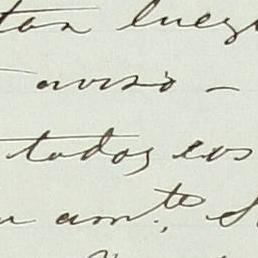 tan luego
aviso –
todos los
am.te S